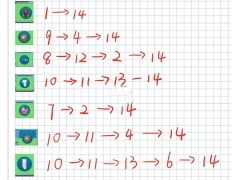 1→14
9→4→14
8→12→2→14
10→11→13-14
7→2→14
10→11→4→14
10→11→13→6→14